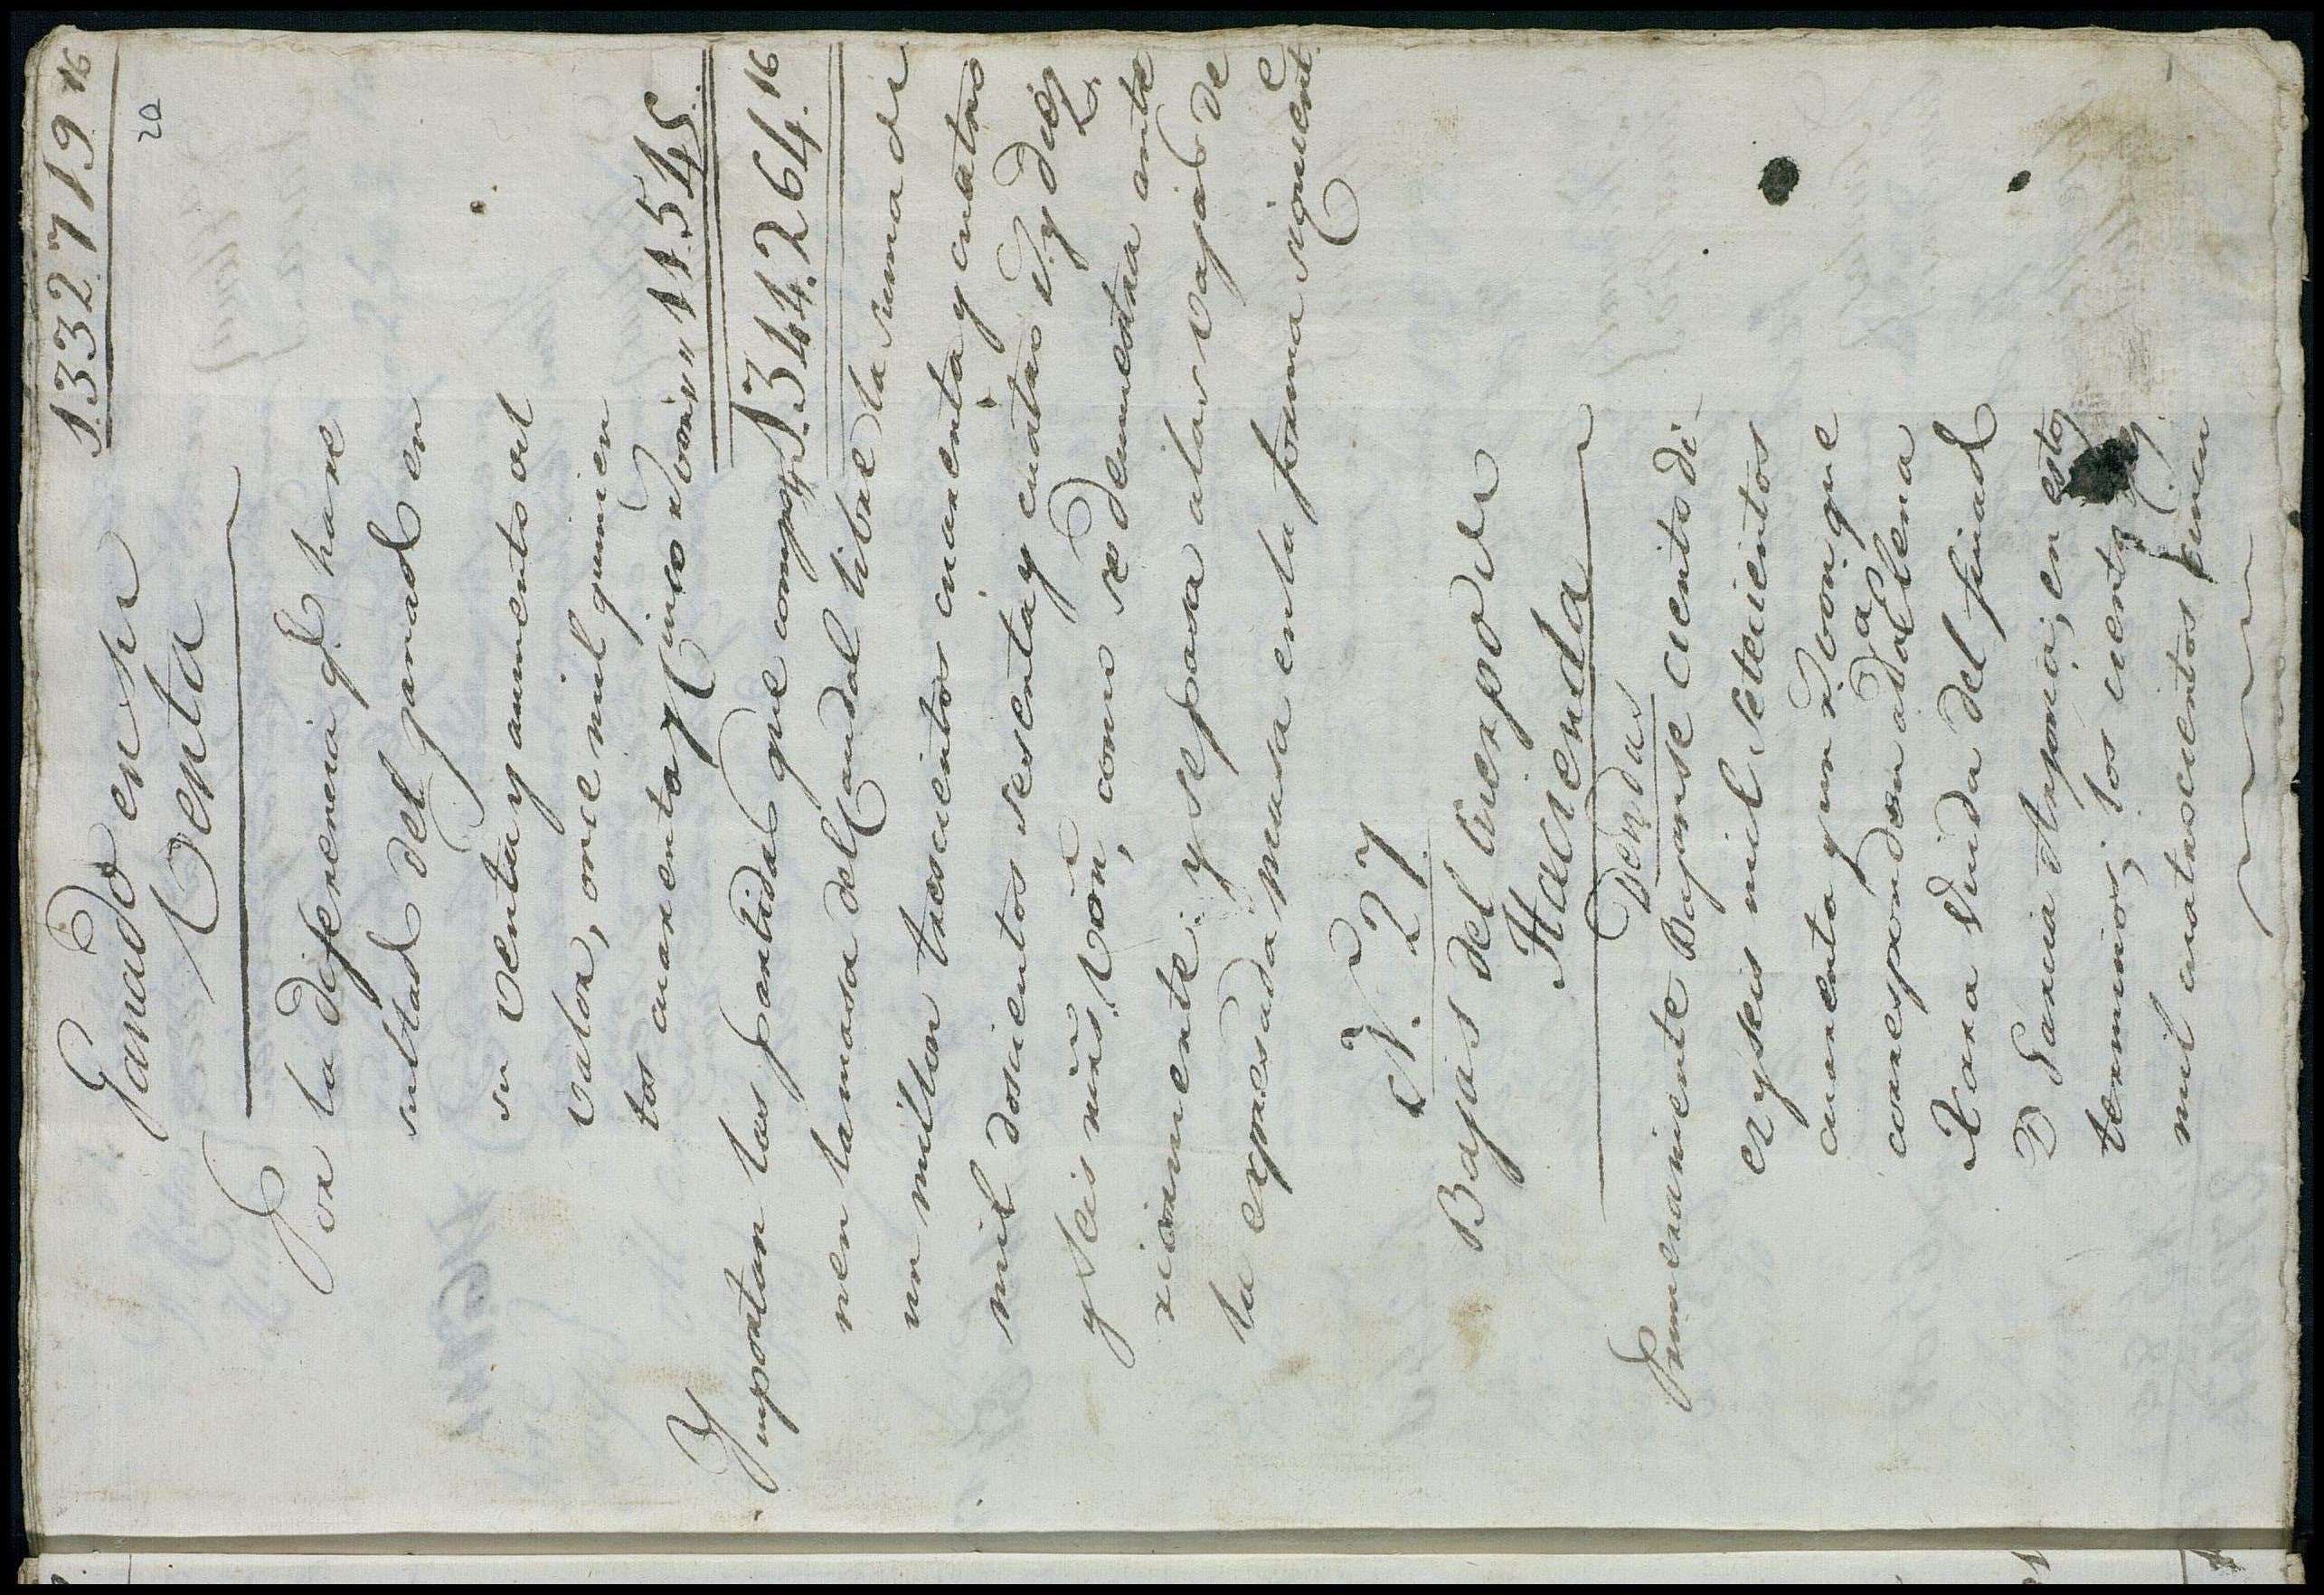 1.332.719.16
20
Ganado en su
Venta
Por la diferencia qe hare
sultado del ganado en
su venta y aumento al
valor, once mil quinien
tos cuarenta y cinco rs von " " 11.545
Ymportan las partidas que compo 1.344.264.16
nen la masa del caudal libre la suma de
un millon trescientos cuarenta y cuatro
mil doscientos sesenta y cuatro rs y diez
y seis mrs von, como se demuestra ante
riormente: y se pasa a las vajas de
la expresada masa en la forma siguiente
N. 27
Bajas del cuerpo de
Hacienda
Deudas
Primeramente Bajanse ciento di-
ez y seis mil setecientos
cuarenta y un rs von que
corresponden a Da Elena
Xara Viuda del finado
D Garcia Arjona, en estos
terminos; los ciento
mil cuatrocientos